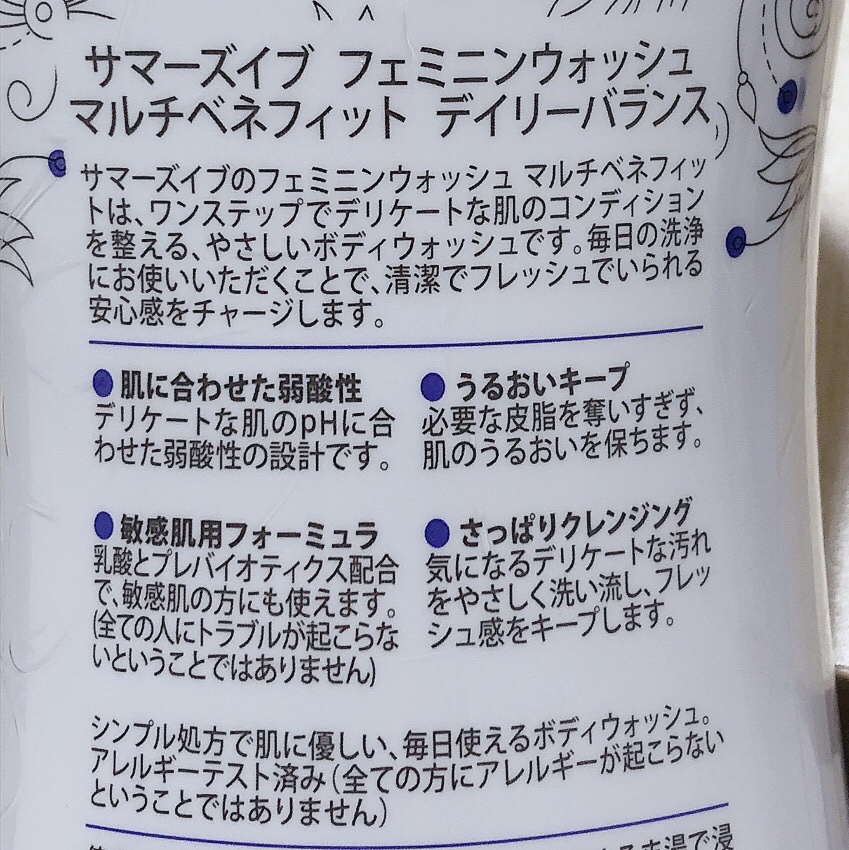 サマーズイブ フェミニンウォッシュ
マルチベネフィット デイリーバランス
サマーズイブのフェミニンウォッシュ マルチベネフィッ
トは、ワンステップでデリケートな肌のコンディション
を整える、やさしいボディウォッシュです。毎日の洗浄
にお使いいただくことで、清潔でフレッシュでいられる
安心感をチャージします。
● 肌に合わせた弱酸性
デリケートな肌のpHに合
わせた弱酸性の設計です。
● うるおいキープ
必要な皮脂を奪いすぎず、
肌のうるおいを保ちます。
● 敏感肌用フォーミュラ
乳酸とプレバイオティクス配合
で、敏感肌の方にも使えます。
(全ての人にトラブルが起こらな
いということではありません)
● さっぱりクレンジング
気になるデリケートな汚れ
をやさしく洗い流し、フレッ
シュ感をキープします。
シンプル処方で肌に優しい、毎日使えるボディウォッシュ。
アレルギーテスト済み(全ての方にアレルギーが起こらない
ということではありません)